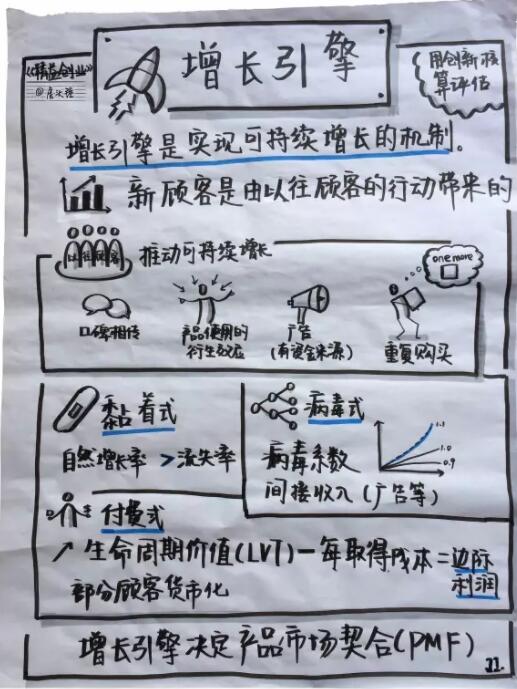 增长引擎
《精益创业》
用创新核
算评估
增长引擎是实现可持续增长的机制。
新顾客是由以往顾客的行动带来的
以往顾客
推动可持续增长
one more
口碑相传
产品使用的
衍生效应
广告
(有资金来源)
重复购买
黏着式
自然增长率 > 流失率
病毒式
病毒系数
间接收入(广告等)
1.1
1.0
0.9
付费式
↗ 生命周期价值(LVT)一每取得成本=边际
利润
部分顾客货币化
增长引擎决定产品市场契合(PMF)